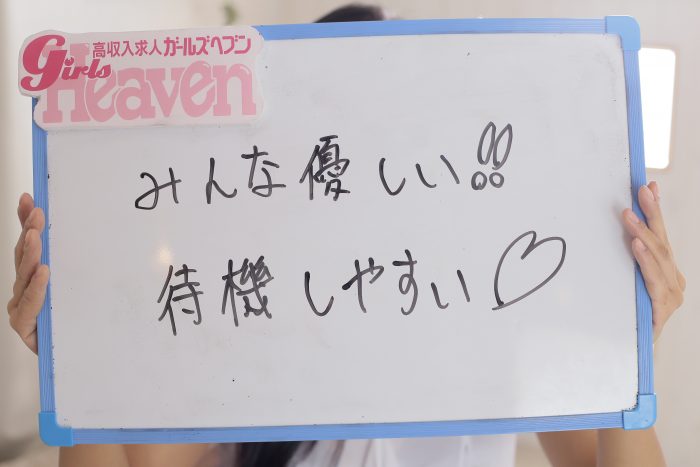 高収入求人ガールズヘブン
Girls
Heaven
みんな優しい!!
待機しやすい♡